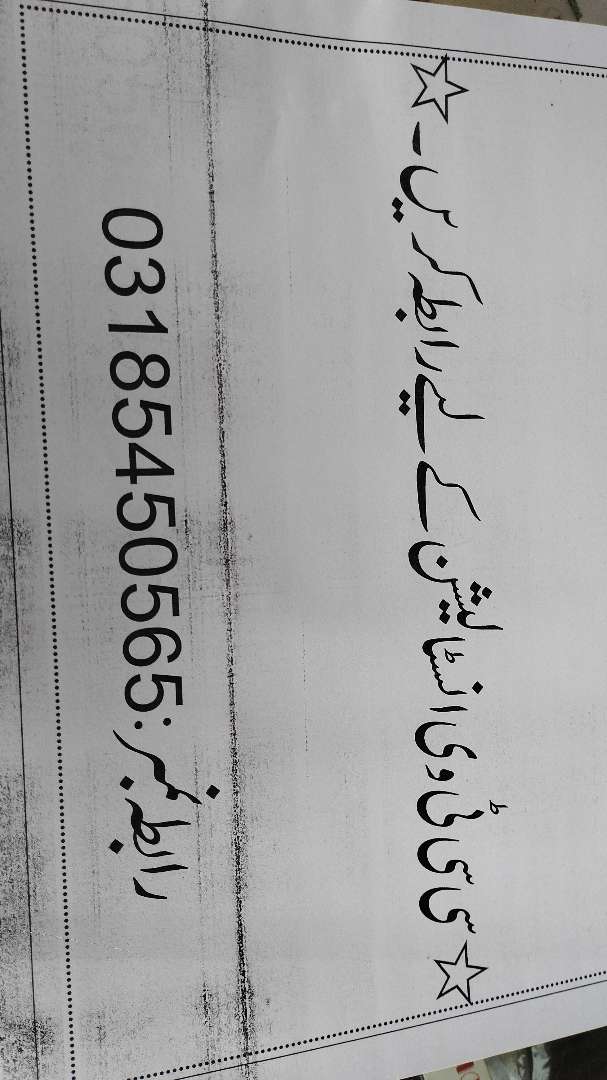 ☆ سی سی ٹی وی انسٹالیشن کے لیے رابطہ کریں۔ ☆
رابطہ نمبر:03185450565